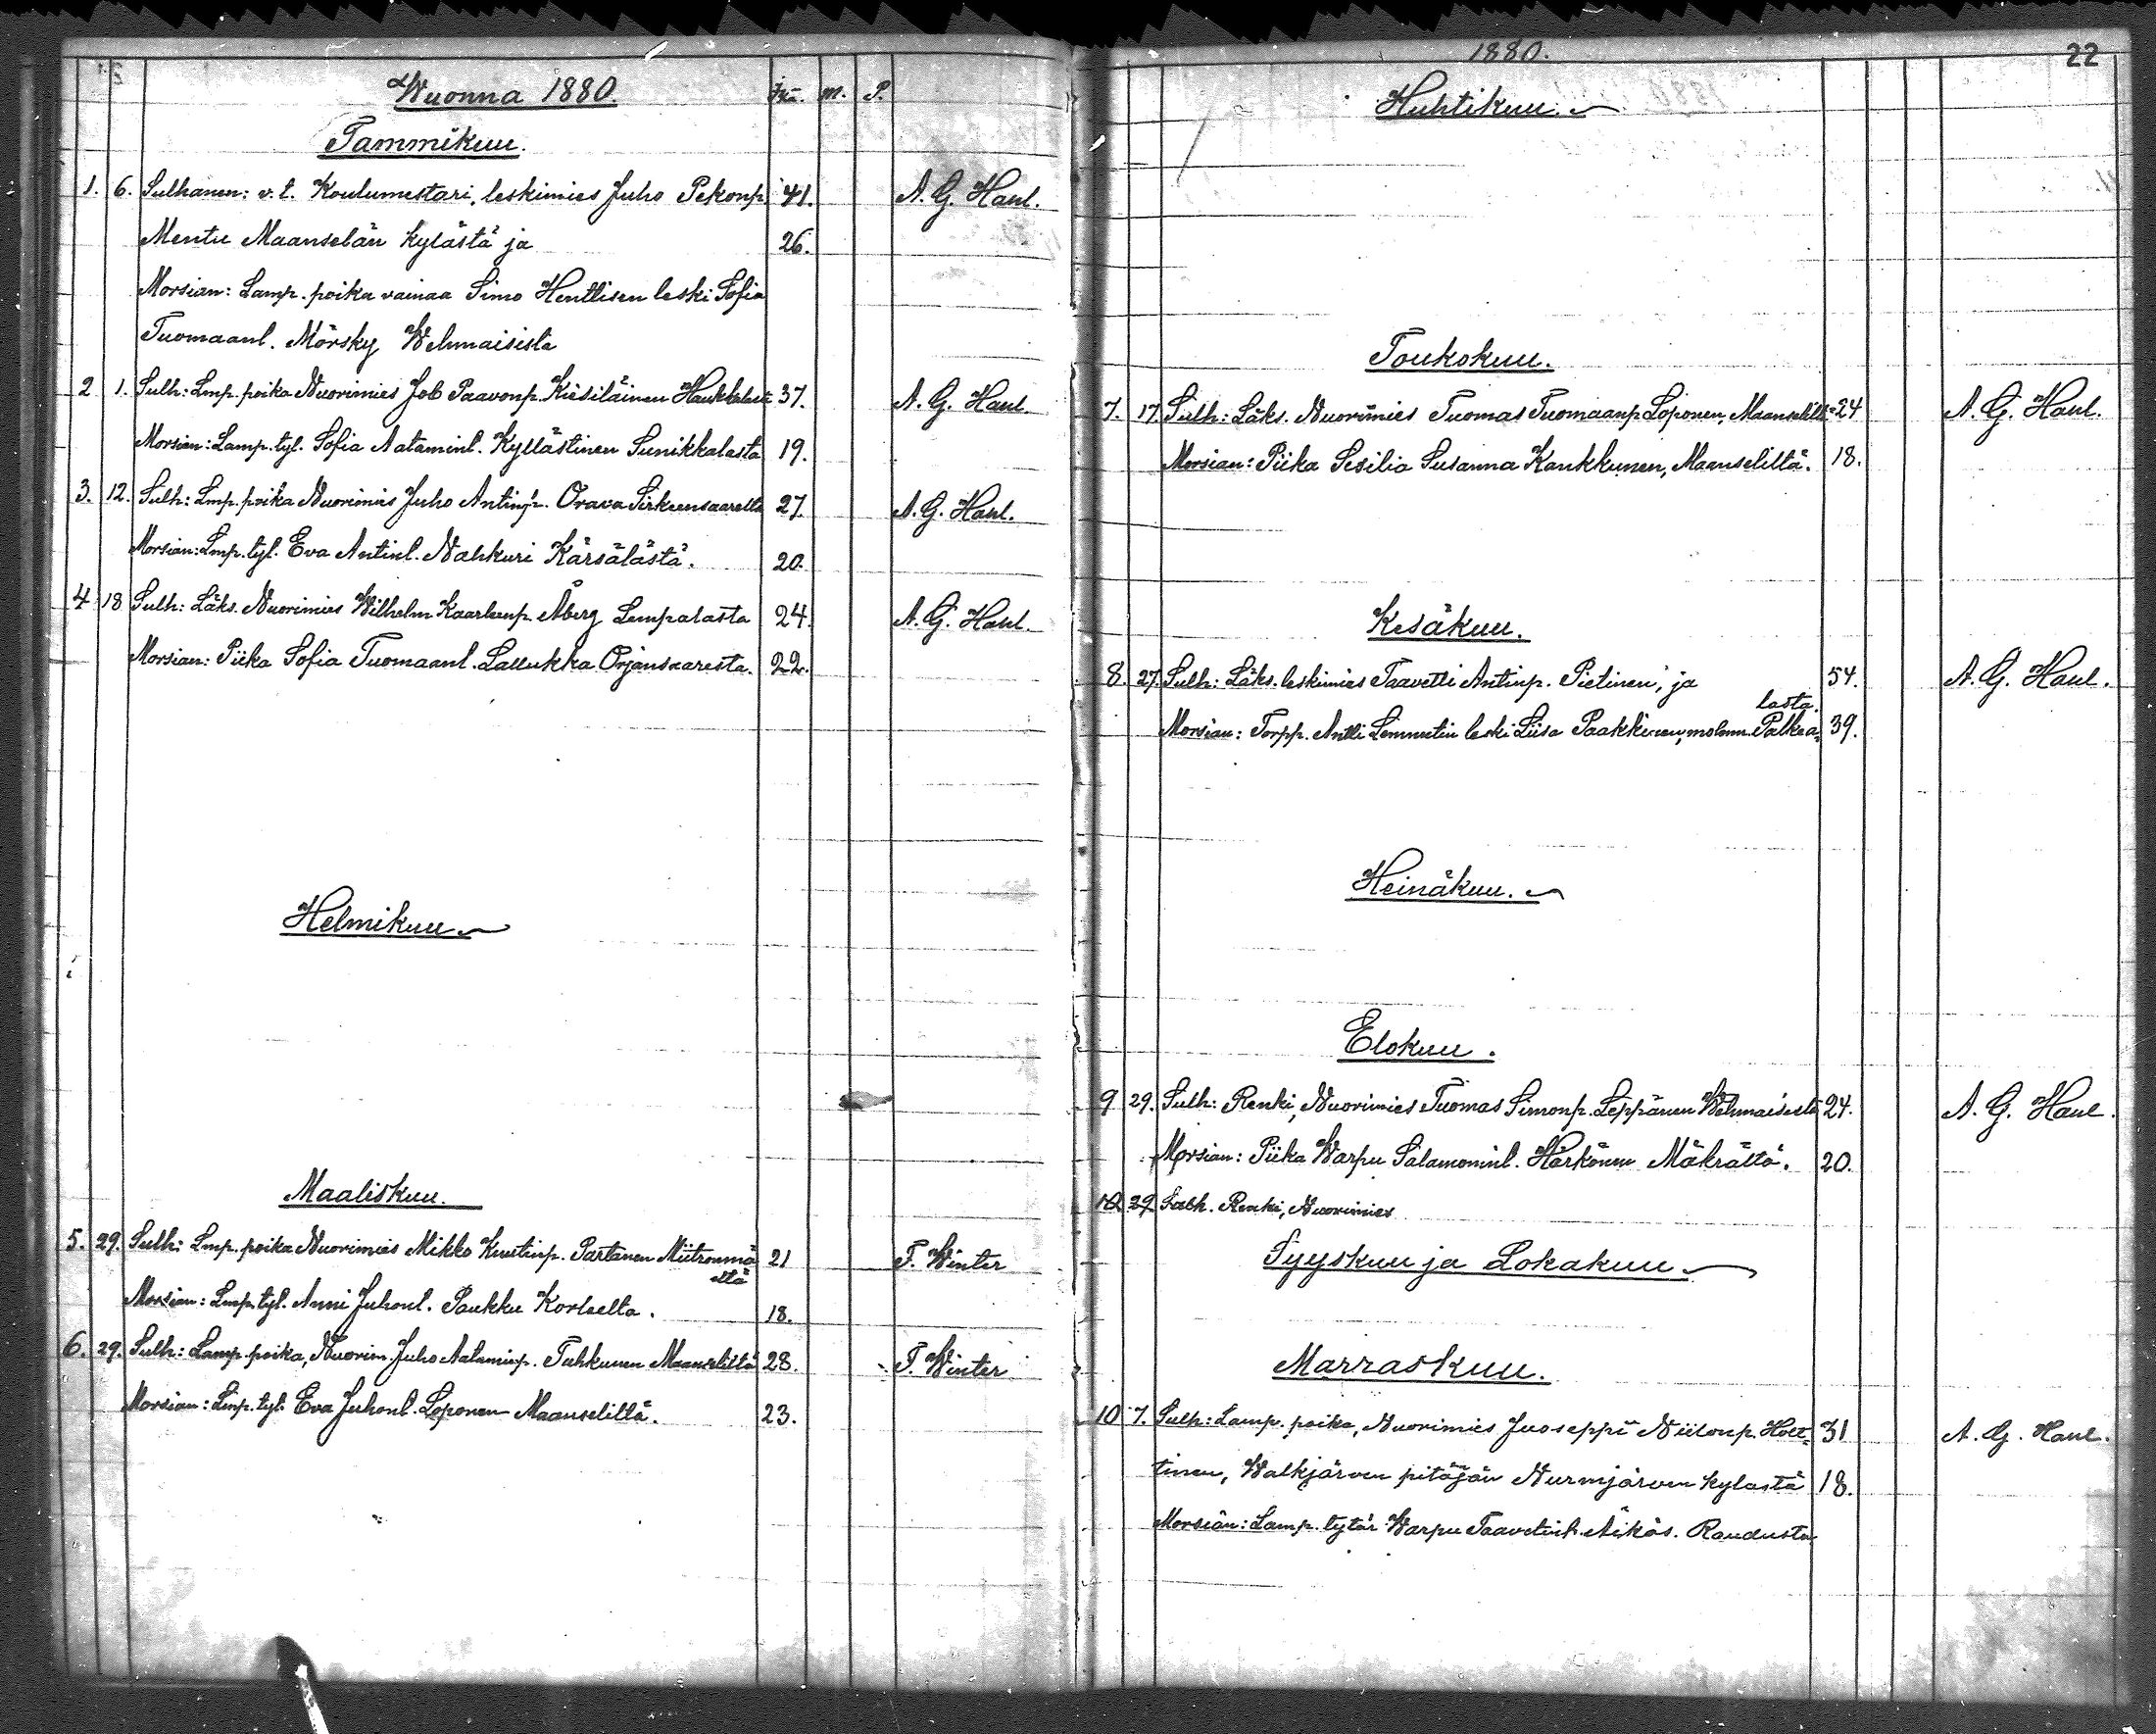 Wuonna 1880. Ikä. m. P.
Tammikuu.
1. 6. Sulhanen: v.t. Koulumestari, leskimies Juho Pekonp. 41. A. G. Hanl.
Mentu Maanselän kylästä ja 26.
Morsian: Lamp. poika vainaa Simo Henttisen leski Sofia
Tuomaanl. Mörsky Wehmaisista
2 1. Sulh: Lmp. poika Nuorimies Job Paavonp. Kiesiläinen 37. A. G. Hanl.
Morsian: Lamp. tyt. Sofia Aataminl. Kyllästinen Sunikkalasta 19.
3. 12. Sulh: Lmp. poika Nuorimies Juho Antinp. Orava Sirkeensaarelta 27. A. G. Hanl.
Morsian: Lmp. tyt. Eva Antinl. Nahkuri Kärsälästä. 20.
4 18 Sulh: Läks. Nuorimies Wilhelm Kaarleenp. Åberg Lempalasta 24. A. G. Hanl.
Morsian: Piika Sofia Tuomaanl. Lallukka Orjansaaresta. 22.
Helmikuu
Maaliskuu.
5. 29. Sulh: Lmp. poika Nuorimies Mikko Kustinp. Partanen Miitronmä 21 T. Winter
eltä
Morsian: Lmp. tyt. Anni Juhonl. Paukku Korleelta. 18.
6. 29. Sulh: Lamp. poika, Nuorim. Juho Aataminp. Tuhkunen Maanseliltä 28. T. Winter
Morsian: Lmp. tyt. Eva Juhonl. Loponen Maanseliltä. 23.
1880. 22
Huhtikuu.
Toukokuu.
7. 17. Sulh: Läks. Nuorimies Tuomas Tuomaanp. Loponen, Maanselilt= 24 A. G. Hanl.
Morsian: Piika Sesilia Susanna Kaukkunen, Maanseliltä. 18.
Kesäkuu.
8. 27. Sulh: Läks. leskimies Taavetti Antinp. Pietinen, ja 54. A. G. Hanl.
lasta.
Morsian: Torpp. Antti Lemmetin leski Liisa Paakkinen, molem. Palkea= 39.
Heinäkuu.
Elokuu.
9 29. Sulh: Renki, Nuorimies Tuomas Simonp. Leppänen Wehmaisista 24. A. G. Hanl.
Morsian: Piika Warpu Salamoninl. Härkönen Mäkrältä. 20.
10 29 Sulh. Renki, Nuorimies
Syyskuu ja Lokakuu
Marraskuu.
10 7. Sulh: Lamp. poika, Nuorimies Juoseppi Niilonp. Hott= 31 A. G. Hanl.
tinen, Walkjärven pitäjän Nurmjärven kylästä 18.
Morsian: Lamp. tytär Warpu Taavetinl. Äikäs. Raudusta